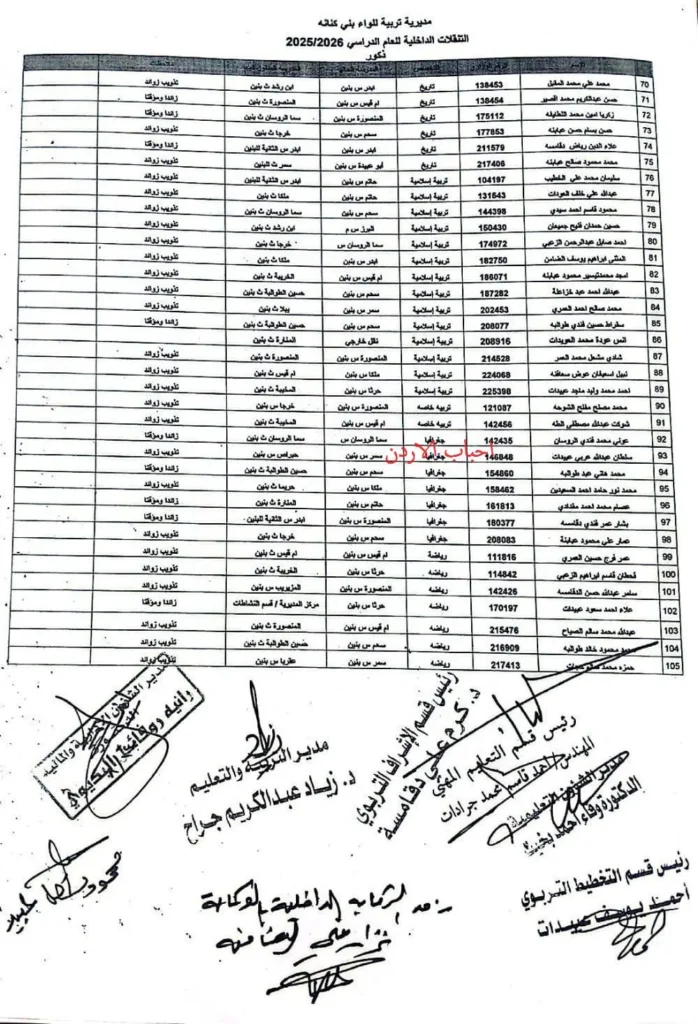 مديرية تربية للواء بني كنانه
التنقلات الداخلية للعام الدراسي 2025/2026
ذكور
70 محمد علي محمد المقبل 138453 تاريخ ابدر س بنين ابن رشد ث بنين تذويب زوائد
71 حسن عبدالكريم محمد 138454 تاريخ ام قيس س بنين المنصورة ث بنين زائدا ومؤقتا
72 زكريا امين محمد 175112 تاريخ المنصورة س بنين سما الروسان ث بنين تذويب زوائد
73 حسن بسام حسن عبابنه 177853 تاريخ سحم س بنين خرجا ث بنين تذويب زوائد
74 علاء الدين رياض دقامسه 211579 تاريخ ابدر س بنين ابدر س الثانية للبنين زائدا ومؤقتا
75 محمد محمود صالح عبابنه 217406 تاريخ ابو عبيدة س بنين سمر ث للبنين تذويب زوائد
76 سليمان محمد علي الخطيب 104197 تربية إسلامية حاتم س بنين ابدر س الثانية للبنين زائدا ومؤقتا
77 عبدالله علي خلف العودات 131543 تربية إسلامية حاتم س بنين ملكا ث بنين تذويب زوائد
78 محمود قاسم احمد سيدي 144398 تربية إسلامية سحم س بنين سما الروسان ث بنين تذويب زوائد
79 حسين حمدان فليح جميعان 150430 تربية إسلامية اليرز س م ابن رشد ث بنين تذويب زوائد
80 احمد صايل عبدالرحمن الزعبي 174972 تربية إسلامية سما الروسان س خرجا ث بنين تذويب زوائد
81 المثنى ابراهيم يوسف الضامن 182750 تربية إسلامية ابدر س بنين ملكا ث بنين تذويب زوائد
82 امجد محمدتيسير محمود عبابنه 186071 تربية إسلامية ام قيس س بنين الخريبة ث بنين تذويب زوائد
83 عبدالله احمد عبد خزاعلة 187282 تربية إسلامية سحم س بنين حسين الطوالبة ث بنين تذويب زوائد
84 محمد صالح احمد العمري 202453 تربية إسلامية سمر س بنين يبلا ث بنين تذويب زوائد
85 سقراط حسين فندي طوالبه 208077 تربية إسلامية سحم س بنين حسين الطوالبة ث بنين زائدا ومؤقتا
86 انس عودة محمد العويدات 208916 تربية إسلامية نقل خارجي المنارة ث بنين
87 شادي مشعل محمد العمر 214528 تربية إسلامية المنصورة س بنين المنصورة ث بنين تذويب زوائد
88 نبيل اسعيفان عوض سمافنه 224068 تربية إسلامية ملكا س بنين ام قيس ث بنين تذويب زوائد
89 احمد محمد وليد ماجد عبيدات 225398 تربية إسلامية حرثا س بنين المخيبة ث بنين تذويب زوائد
90 محمد مصلح مفلح الشوحه 121087 تربيه خاصه المنصورة س بنين خرجا س بنين تذويب زوائد
91 شوكت عبدالله مصطفى الطه 142456 تربيه خاصه ام قيس س بنين المخيبة ث بنين تذويب زوائد
92 عوني محمد فندي الروسان 142435 جغرافيا سما الروسان س سما الروسان ث بنين زائدا ومؤقتا
93 سلطان عبدالله عربي عبيدات 146848 جغرافيا سمر س بنين حبراص س بنين تذويب زوائد
أحباب الاردن
94 محمد هاني عبد طوالبه 154860 جغرافيا سحم س بنين حسين الطوالبة ث بنين تذويب زوائد
95 محمد نور حامد احمد السعيدين 158462 جغرافيا ملكا س بنين حريما ث بنين تذويب زوائد
96 عصام محمد احمد مقدادي 161813 جغرافيا حاتم س بنين المنارة ث بنين زائدا ومؤقتا
97 بشار عمر فندي دقامسه 180377 جغرافيا المنصورة س بنين ابدر س الثانية للبنين زائدا ومؤقتا
98 عمار علي محمود عبابنة 208083 جغرافيا سحم س بنين خرجا ث بنين تذويب زوائد
99 عمر فرج حسين العمري 111816 رياضة ام قيس س بنين ام قيس ث بنين تذويب زوائد
100 قحطان قاسم ابراهيم الزعبي 114842 رياضه حرثا س بنين الخريبة ث بنين تذويب زوائد
101 سامر عبدالله حسن الدقامسه 142426 رياضه المنصورة س بنين المزيريب س بنين تذويب زوائد
102 علاء احمد سعود عبيدات 170197 رياضه حرثا س بنين مركز المديرية / قسم النشاطات زائدا ومؤقتا
103 عبدالله محمد سالم الصياح 215476 رياضه ام قيس س بنين المنصورة ث بنين تذويب زوائد
104 محمود خالد طوالبه 216909 رياضه سحم س بنين حسين الطوالبة ث بنين تذويب زوائد
105 حمزه محمد 217413 رياضه سمر س بنين عقربا س بنين تذويب زوائد
رئيس قسم الإشراف التربوي
د. كرم علي دقامسة
رئيس قسم التعليم المهني
المهندس احمد قاسم محمد جرادات
مدير الشؤون التعليمية
الدكتوره وفاء احمد
مدير التربية والتعليم
د. زياد عبدالكريم جراح
مدير الشؤون الإدارية والمالية
رئيس قسم التخطيط التربوي
أحمد يوسف عبيدات
الرقابه الداخلية بالوكالة